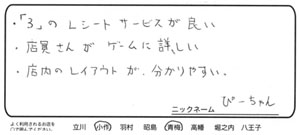 ・「3」のレシートサービスが良い
・店員さんがゲームに詳しい
・店内のレイアウトが、分かりやすい。
ニックネーム ぴーちゃん
よく利用されるお店を
○で囲んでください。
立川 小作 羽村 昭島 青梅 高幡 堀之内 八王子